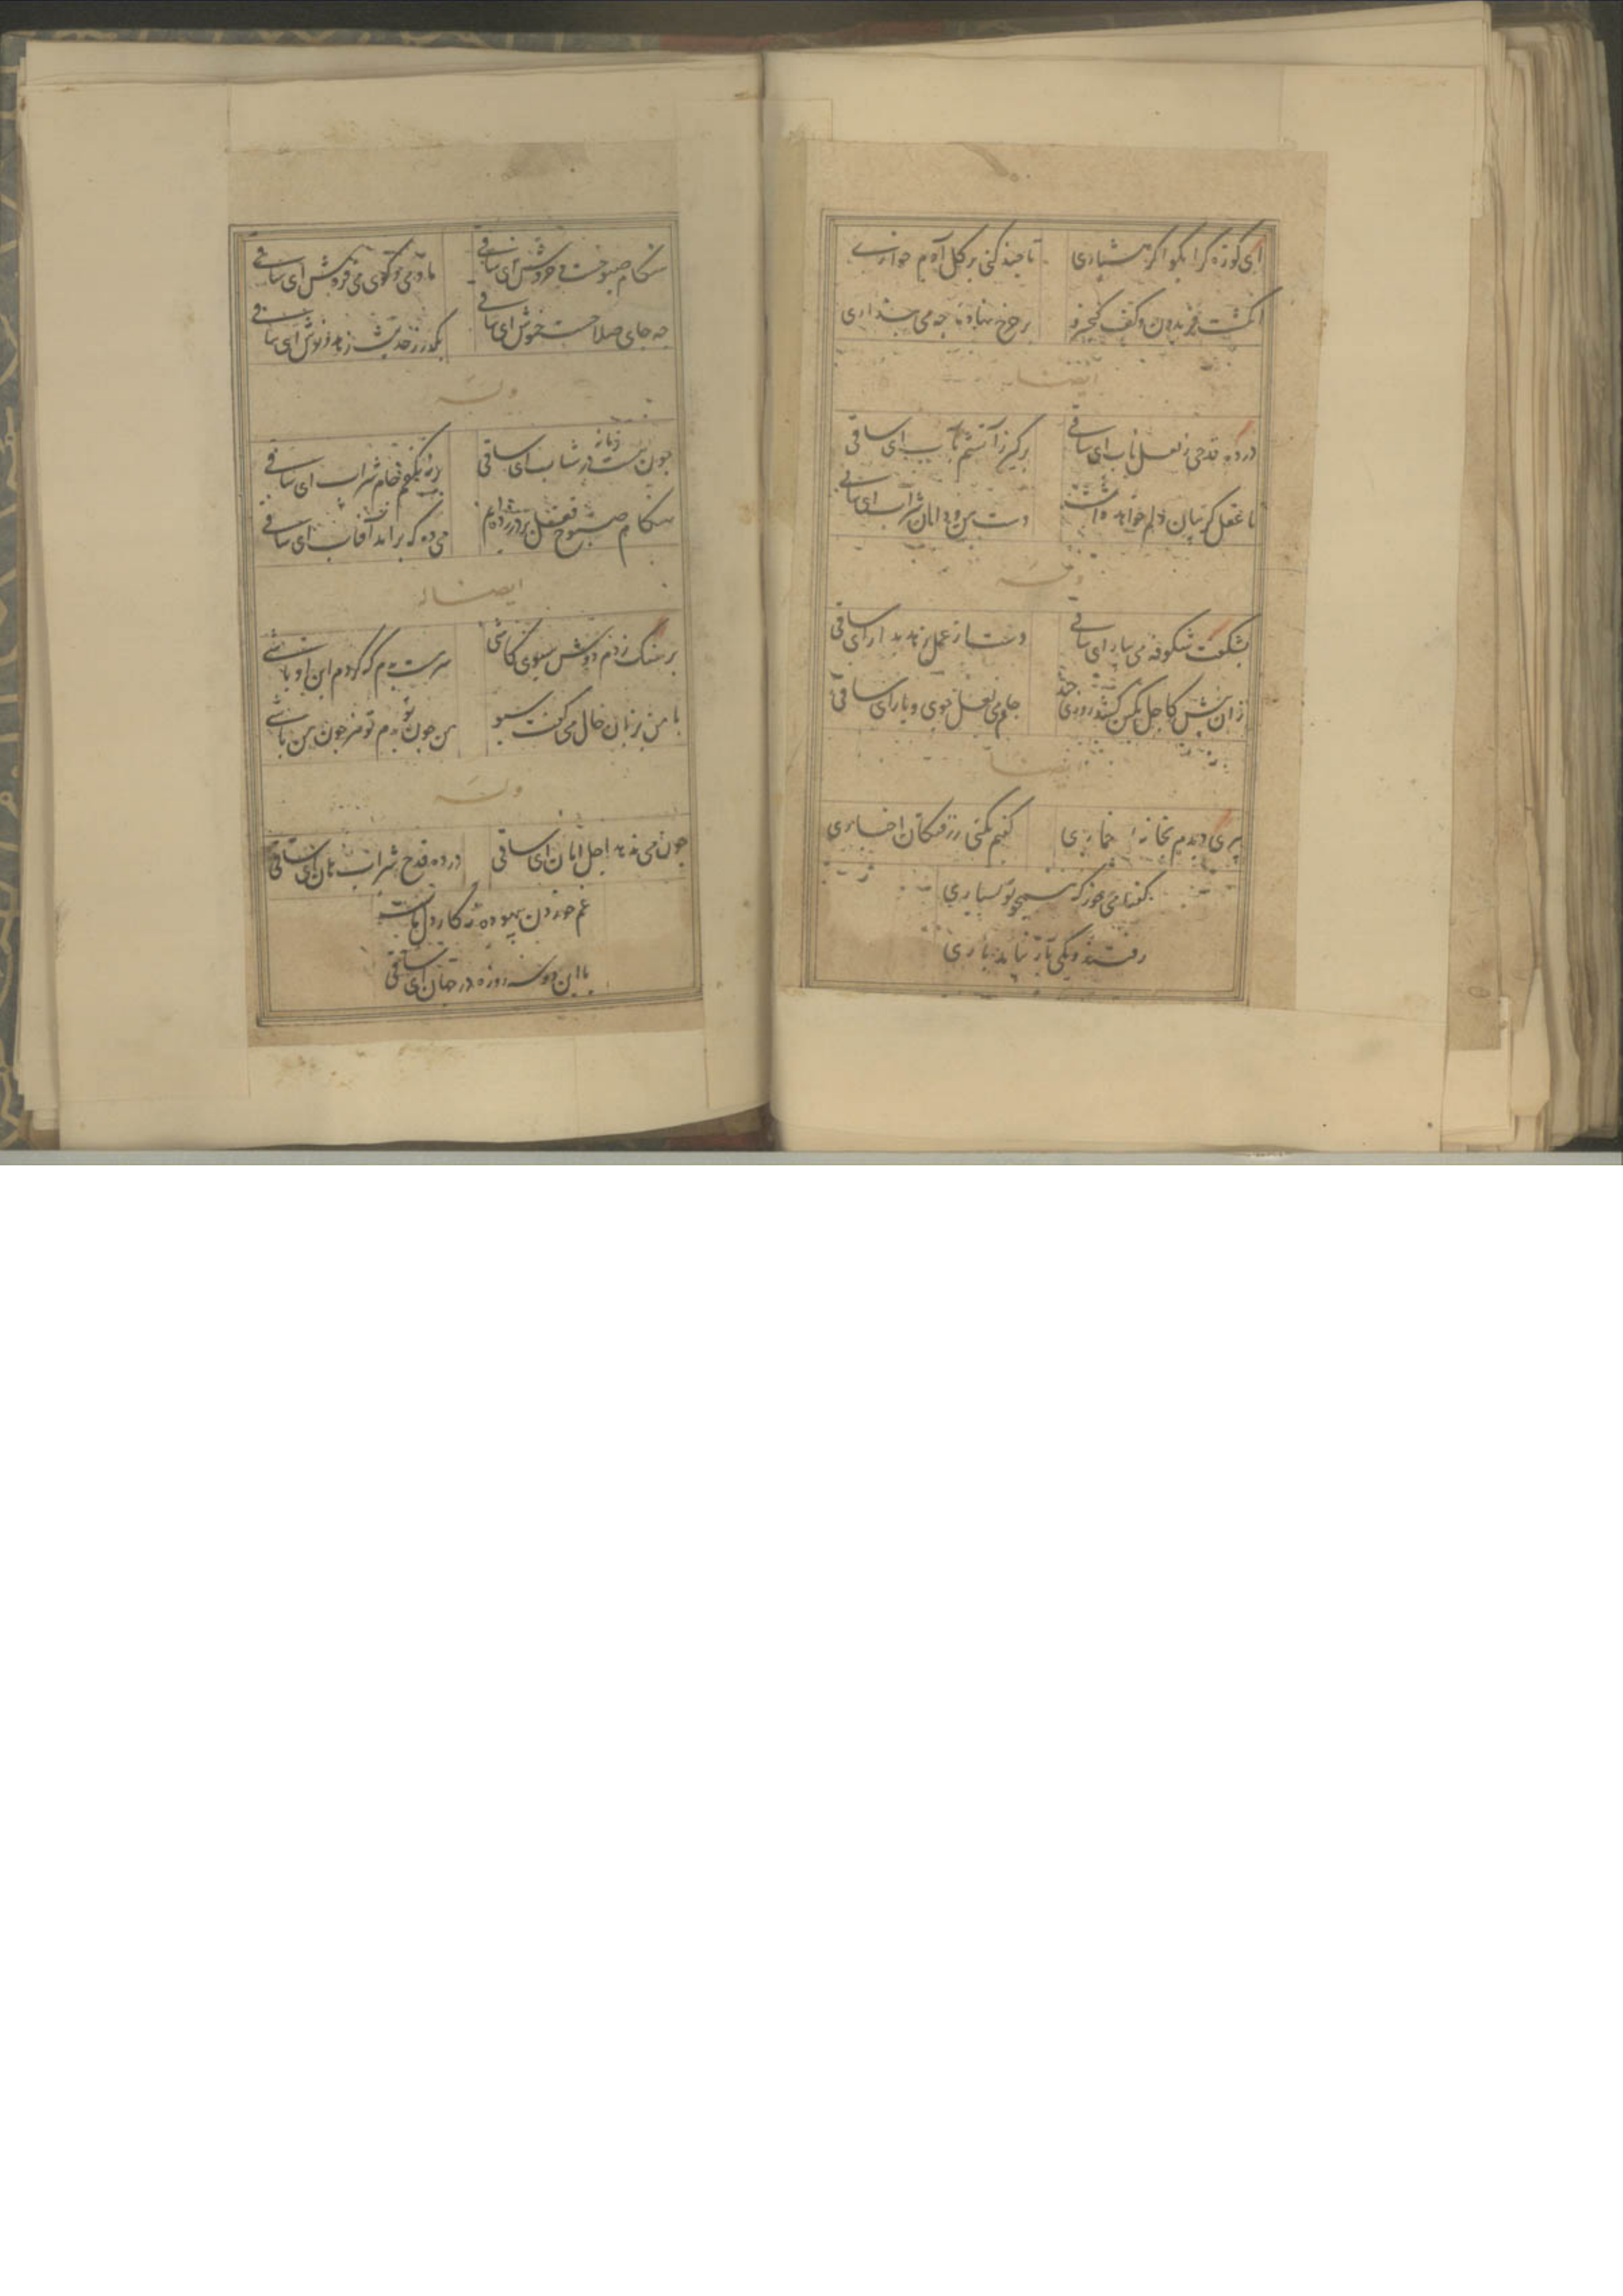 ای کوزه کرا بکوا کر هشیاری تا چند کنی بر کل آدم خواری
انکشت فریدون و کف کیخسرو بر چرخ نهاده چه می پنداری
ایضا
در ده قدحی ز لعل ناب ای ساقی برکیر ز آتشم بآب ای ساقی
تا عقل کریبان دلم خواهد داشت دست من و دامان شراب ای ساقی
وله
بشکفت شکوفه می بیار ای ساقی دست از عمل زهد بدار ای ساقی
زان پیش کاجل کمین کشد روزی چند جام می لعل و روی یار ای ساقی
ایضا
پیری دیدم بخانه خماری کفتم نکنی ز رفتکان اخباری
کفتا می خور که همچو تو بسیاری
رفتند و یکی باز نیامد باری
هنکام صبوحست و خروش ای ساقی ما و می و کوی می فروش ای ساقی
چه جای صلاحست خموش ای ساقی بکذر ز حدیث زهد و نوش ای ساقی
وله
چون هست زمانه در شتاب ای ساقی برنه بکفم جام شراب ای ساقی
هنکام صبوح قفل بر در زده ایم می ده که برآمد آفتاب ای ساقی
ایضا
بر سنک زدم دوش سبوی کاشی سرمست بدم که کردم این اوباشی
با من بزبان حال می کفت سبو من چون تو بدم تو نیز چون من باشی
وله
چون می ندهد اجل امان ای ساقی در ده قدح شراب هان ای ساقی
غم خوردن بیهوده نه کار دل ماست
با این دو سه روزه در جهان ای ساقی